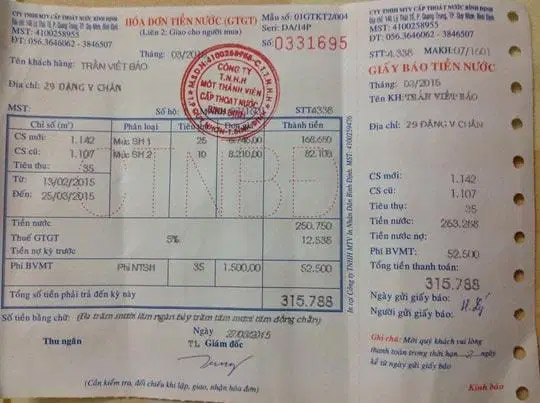 CTY TNHH MTV CẤP THOÁT NƯỚC BÌNH ĐỊNH
MST: 4100258955
ĐT: 056.3646062 - 3846507
HÓA ĐƠN TIỀN NƯỚC (GTGT)
(Liên 2: Giao cho người mua)
Mẫu số: 01GTKT2/004
Seri: DA/14P
Số 0331695
Tháng 03/2015
Tên khách hàng: TRẦN VIẾT BẢO
Địa chỉ: 29 ĐẶNG V CHẤN
MST:
Số hộ:
STT4.338
CÔNG TY
T.N.H.H
MỘT THÀNH VIÊN
CẤP THOÁT NƯỚC
BÌNH ĐỊNH
Chỉ số (m³) Phân loại Tiêu thụ Đơn giá Thành tiền
CS mới: 1.142 Mức SH 1 25 168.650
CS cũ: 1.107 Mức SH 2 10 8.210,00 82.100
Tiêu thụ: 35
Từ: 13/02/2015
Đến: 25/03/2015
CTNBĐ
Tiền nước 250.750
Thuế GTGT 5% 12.538
Tiền nợ kỳ trước
Phí BVMT Phí NTSH 35 1.500,00 52.500
Tổng số tiền phải trả đến kỳ này 315.788
Số tiền bằng chữ: (Ba trăm mười lăm ngàn bảy trăm tám mươi tám đồng chẵn)
Ngày 27/03/2015
Thu ngân
TL Giám đốc
(Cần kiểm tra, đối chiếu khi lập, giao, nhận hóa đơn)
In tại Công ty TNHH MTV In Nhân Dân Bình Định, MST: 4100259476
CTY TNHH MTV CẤP THOÁT NƯỚC BÌNH ĐỊNH
MST: 4100258955
ĐT: 056.3646062 - 3846507
STT:4.338 MAKH:07/1601
GIẤY BÁO TIỀN NƯỚC
Tháng: 03/2015
Tên KH:TRẦN VIẾT BẢO
Địa chỉ: 29 ĐẶNG V CHẤN
CS mới: 1.142
CS cũ: 1.107
Tiêu thụ: 35
Tiền nước: 263.288
Tiền nước nợ:
Phí BVMT: 52.500
Tổng tiền thanh toán:
315.788
Ngày gửi giấy báo:
Người gửi giấy báo:
Ghi chú: Mời quý khách vui lòng
thanh toán trong thời hạn 2 ngày
kể từ ngày gửi giấy báo
Kính báo